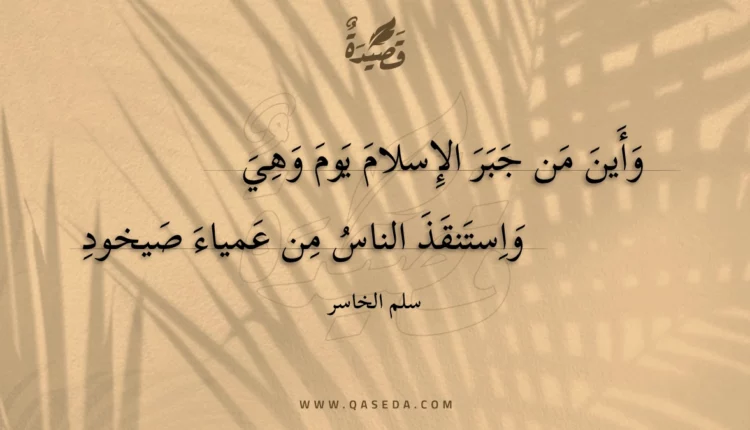 قَصِيدَةٌ
وَأَينَ مَن جَبَرَ الإِسلامَ يَومَ وَهِيَ
وَاِستَنقَذَ الناسُ مِن عَمياءَ صَيخودِ
سلم الخاسر
WWW.QASEDA.COM